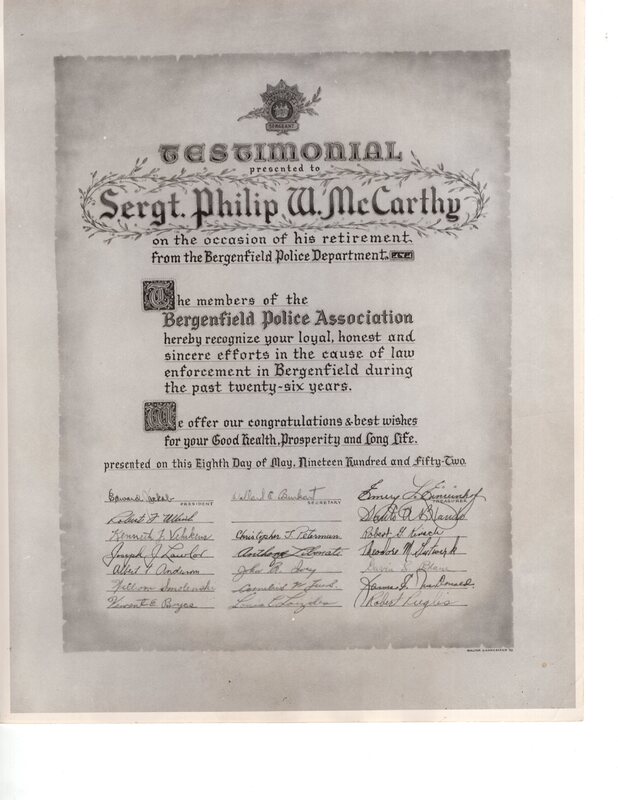 SERGEANT
TESTIMONIAL
presented to
Sergt. Philip W. McCarthy
on the occasion of his retirement
from the Bergenfield Police Department.
The members of the
Bergenfield Police Association
hereby recognize your loyal, honest and
sincere efforts in the cause of law
enforcement in Bergenfield during
the past twenty-six years.
We offer our congratulations & best wishes
for your Good Health, Prosperity and Long Life.
presented on this Eighth Day of May, Nineteen Hundred and Fifty-Two.
Edward Willard Burkart Emery
PRESIDENT SECRETARY TREASURER
Robert F.
Kenneth F. Christopher J. Peterman Robert G.
Joseph J. Theodore M.
Albert T. Anderson John R.
William Smolenski Cornelius W. James
Vincent E. Boyce Louis C. Robert Puglis